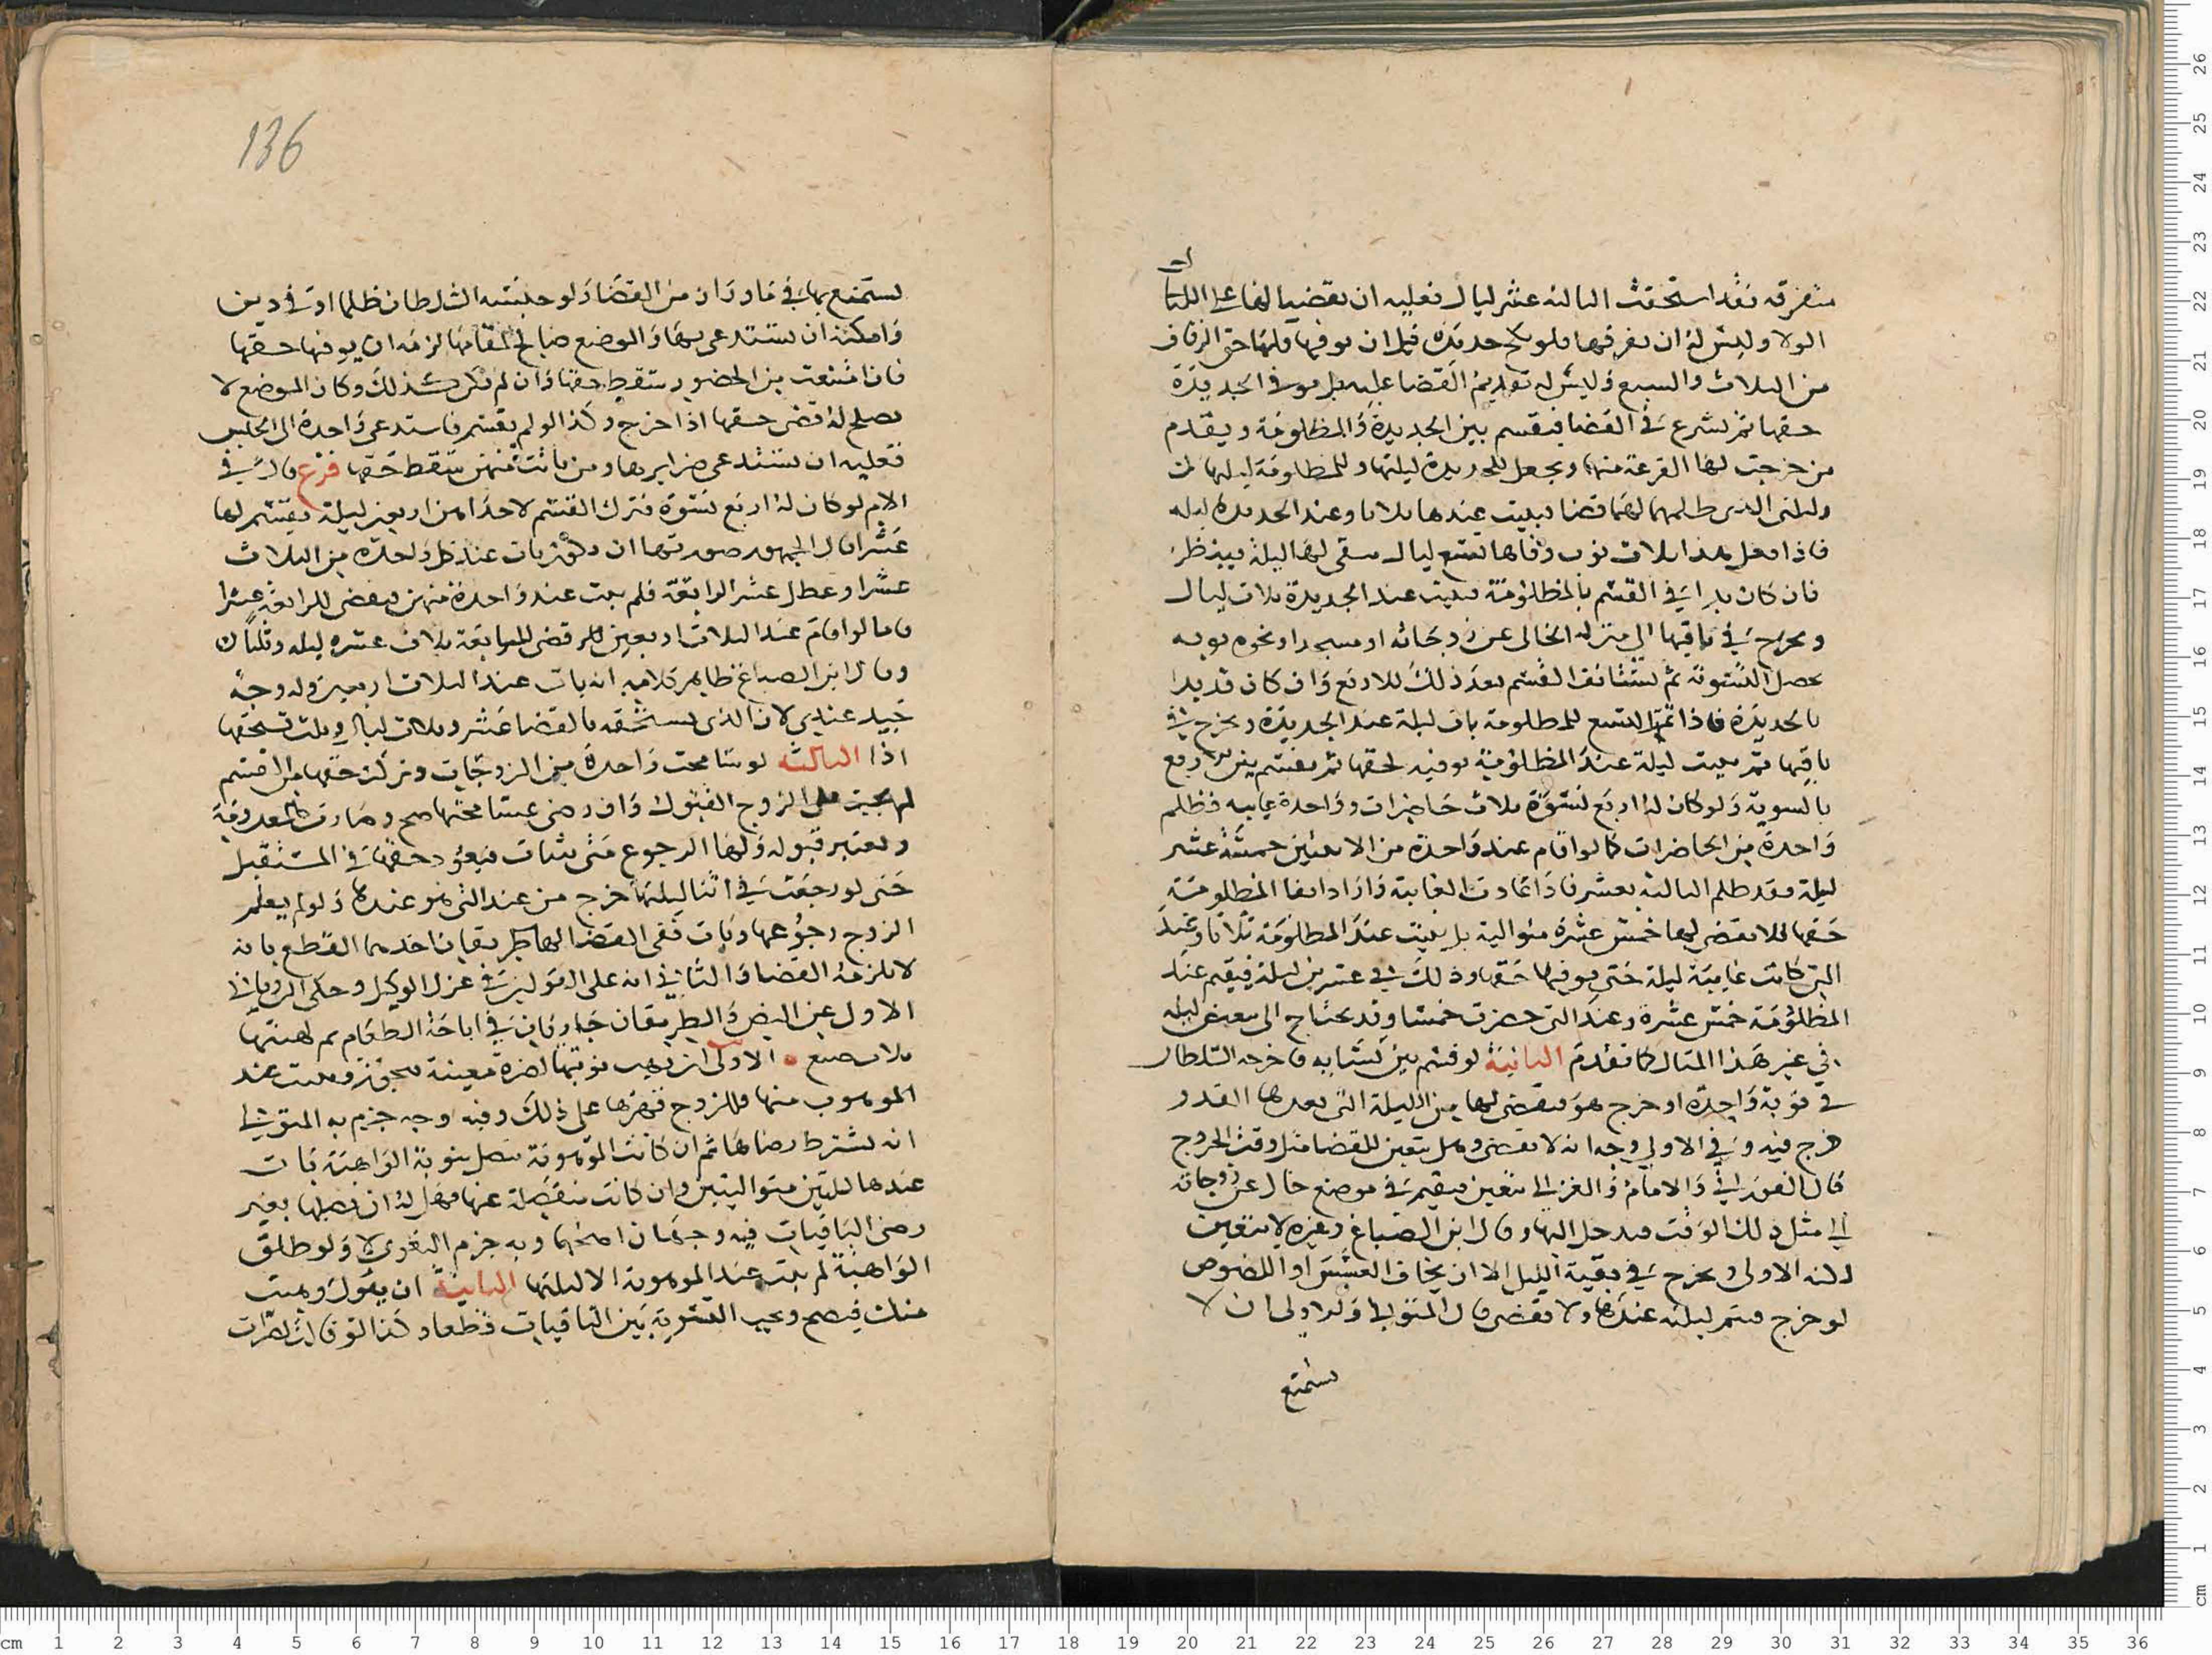 متفرقه فقد استحقت الثالثة عشر ليال فعليه ان يقضيها لها على
الولا وليس له ان يفرقها فلو نكح جديدة قبل ان يوفيها فلها حق الزفاف
من الثلاث والسبع وليس له تقديم القضا عليه بل يوفي الجديدة
حقها ثم يشرع في القضا فيقسم بين الجديدة والمظلومة ويقدم
من خرجت لها القرعة منها ويجعل للجديدة ليلتها وللمظلومة ليلتها
وليلتي التي ظلمهما لهما قضا فيبيت عندها ثلاثا وعند الجديدة ليله
فاذا فعل هذا ثلاث نوب وفاها تسع ليال يبقى لها ليلة فينظر
فان كان بدا في القسم بالمظلومة فيبيت عند الجديدة ثلاث ليال
ويخرج في باقيها الي منزله الخالى عن زوجاته او مسجد او نحوه يويه
يحصل التسوية ثم يستانف القسم بعد ذلك للاربع وان كان قد بدا
بالجديدة فاذا تم التسع للمظلومة بات ليلة عند الجديدة ويخرج في
باقيها ثم يبيت ليلة عند المظلومة يوفيه لحقها ثم يقسم بين الاربع
بالسوية ولو كان له اربع نسوة ثلاث حاضرات وواحدة غايبه فظلم
واحدة من الحاضرات كما لو اقام عند واحدة من الاثنتين خمسة عشر
ليلة فقد ظلم الثالثة بعشر فاذا عادت الغايبة واراد ايفا المظلومة
حقها فلا يقضى لها خمس عشرة متوالية بل يبيت عند المظلومة ثلاثا وعند
التي كانت غايبة ليلة حتى يوفيها حقها وذلك في عشرين ليلة فيقيم عند
المظلومة خمس عشرة وعند التي حضرت خمسا وقد يحتاج الى تبعيض ليله
في غير هذا المثال كما تقدم الثانية لو قسم بين نسايه فاخرجه السلطان
في نوبة واحدة او خرج هو فيقضي لها من الليلة التي بعدها القدر
خرج فيه وفي الاولى وجه انه لا يقضى وهل يتعين للقضا مثل وقت الخروج
قال الفوراني والامام والغزالي يتعين فيقيم في موضع خال عن زوجاته
الي مثل ذلك الوقت فيدخل اليها وقال ابن الصباغ وغيره لا يتعين
لكنه الاولى ويخرج في بقية الليل الا ان يخاف العسس او اللصوص
لو خرج فيتم ليلته عندها ولا يقضى قال المتولي والاولى ان لا
يستمتع
136
يستمتع بها في ما وراء زمن القضا ولو حبسه السلطان ظلما او في دين
وامكنه ان يستدعيهما والموضع صالح لمقامها لزمه ان يوفيها حقها
فان امتنعت من الحضور سقط حقها وان لم يكن كذلك وكان الموضع لا
يصلح له قضى حقها اذا خرج وكذا لو لم يقسم فاستدعى واحدة الى الحبس
فعليه ان يستدعى ضرايرها ومن بانت منهن سقط حقها فرع قال في
الام لو كان له اربع نسوة فترك القسم لاحداهن اربعين ليلة يقسم لها
عشرا قال الجمهور صورتها ان يكون بات عند كل واحدة من الثلاث
عشرا وعطل عشر الرابعة فلم يبت عند واحدة منهن فيقضى للرابعة عشرا
فاما لو اقام عند الثلاث اربعين كلها قضى للرابعة ثلاث عشرة ليله وثلثا
وقال ابن الصباغ ظاهر كلامه انه بات عند الثلاث اربعين وله وجه
جيد عندي لان الذي يستحقه بالقضا عشر وثلاث ليال وثلث تستحقها
اذا الثالثه لو سامحت واحدة من الزوجات وتركت حقها من القسم
لم يجب على الزوج القبول وان رضى بمسامحتها صح وصارت كالمعدومة
ويعتبر قبوله ولها الرجوع متى شات فيعود حقها في المستقبل
حتى لو رجعت في اثنا ليلتها خرج من عند التي هو عندها ولو لم يعلم
الزوج رجوعها وبات ففي القضا لها طريقان احدهما القطع بانه
لا يلزمه القضا والثاني انه على القولين في عزل الوكيل وحكى الروياني
الاول عن النص والطريقان جاريان في اباحة الطعام ثم لهبتها
ثلاث صيغ الاولى ان تهب نوبتها لضرة معينة فيجوز ويبيت عند
الموهوب منها وللزوج قهرها على ذلك وفيه وجه جزم به المتولي
انه يشترط رضاها ثم ان كانت الموهوبة تتصل بنوبة الواهبة بات
عندها ليلتين متواليتين وان كانت منفصلة عنها فهل له ان يصلها بغير
رضى الباقيات فيه وجهان اصحهما وبه جزم البغوي لا ولو طلق
الواهبة لم يبت عند الموهوبة الا ليلتها الثانية ان يقول وهبت
منك فيصح ويجب التسوية بين الباقيات قطعا وكذا لو قالت لضرات